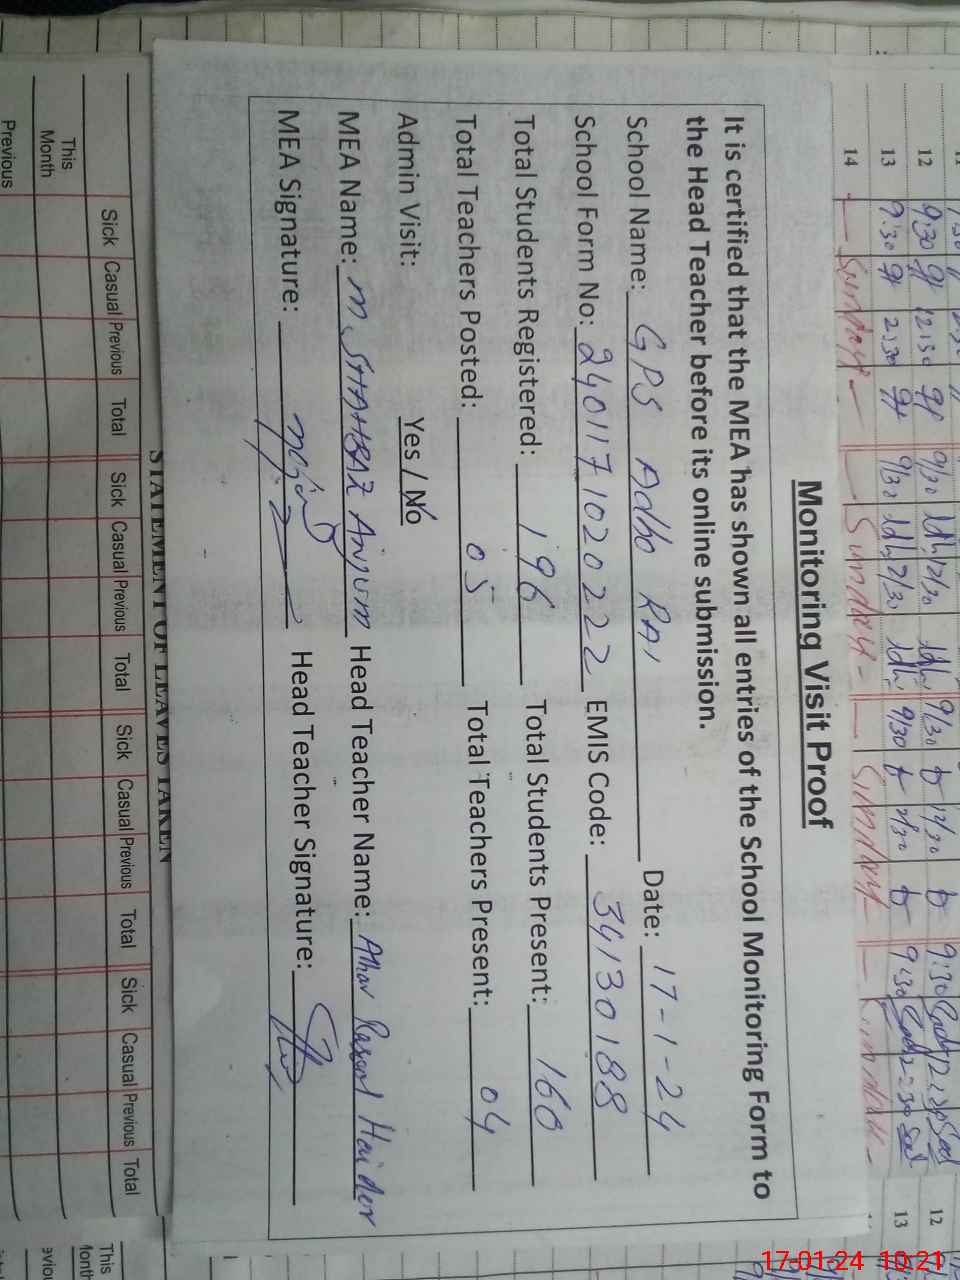 Monitoring Visit Proof
It is certified that the MEA has shown all entries of the School Monitoring Form to
the Head Teacher before its online submission.
School Name: GPS Adho RAI Date: 17-1-24
School Form No: 2401171020222 EMIS Code: 34130188
Total Students Registered: 196 Total Students Present: 160
Total Teachers Posted: 05 Total Teachers Present: 04
Admin Visit: Yes / No
MEA Name: M. SHAHBAZ Anjum Head Teacher Name: Athar Rasool Haider
MEA Signature: Head Teacher Signature:
12 9:30 12:30 9/30 12/30 9/30 12/30 9:30 12:30
13 9:30 2:30 9/30 2/30 9/30 2/30 9:30 2:30
14 Sunday Sunday Sunday Sunday
12
13
STATEMENT OF LEAVES TAKEN
Sick Casual Previous Total Sick Casual Previous Total Sick Casual Previous Total Sick Casual Previous Total
This
Month
Previous
This
17-01-24 10:21